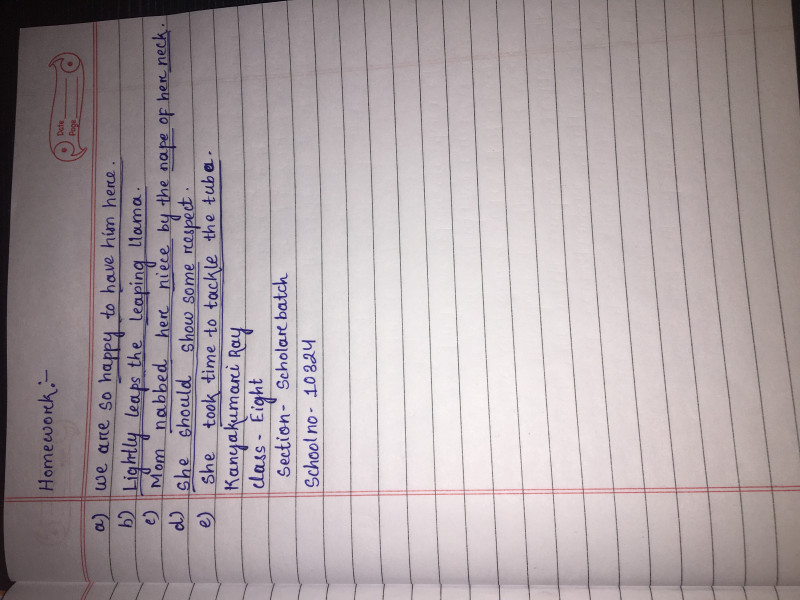 Date
Page
Homework:-
a) We are so happy to have him here.
b) Lightly leaps the leaping llama.
c) Mom nabbed her niece by the nape of her neck.
d) She should show some respect.
e) She took time to tackle the tuba.
Kanyakumari Ray
class - Eight
Section - Scholar batch
School no - 10324